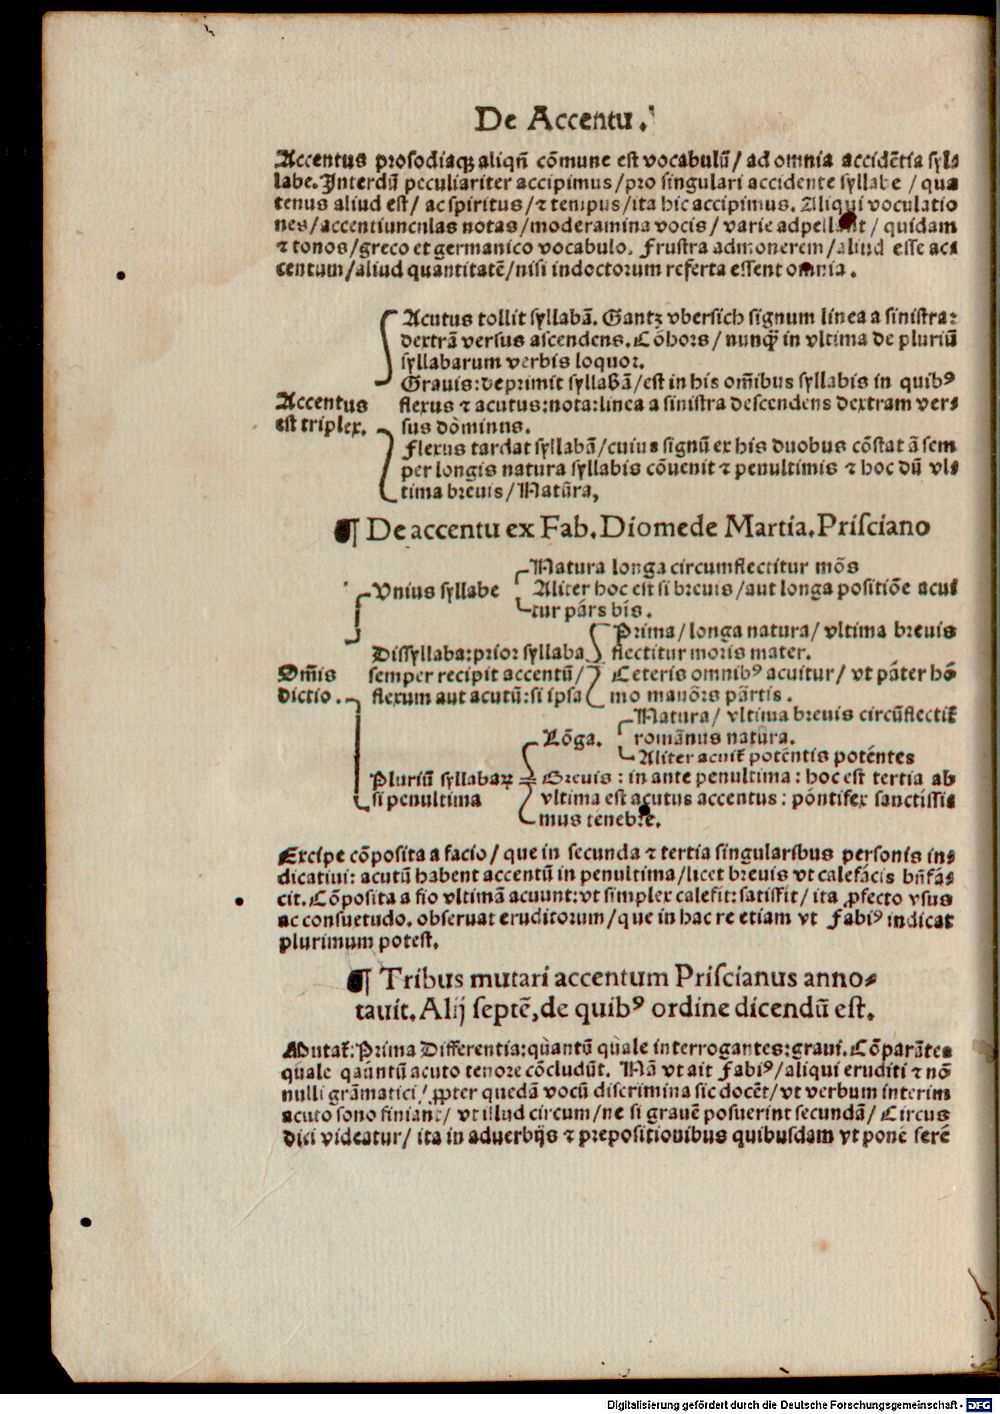 De Accentu.
Accentus prosodiaqꝫ aliqñ cõmune est vocabulũ/ ad omnia accidẽtia syl⸗
labe. Interdũ peculiariter accipimus/pro singulari accidente syllabe / qua
tenus aliud est/ ac spiritus/ ⁊ tempus/ita hic accipimus. Aliqui voculatio
nes/accentiuncnlas notas/moderamina vocis/ varie adpellant/ quidam
⁊ tonos/greco et germanico vocabulo. Frustra admonerem/aliud esse ac⸗
centum/aliud quantitatẽ/nisi indoctorum referta essent omnia.
Acutus tollit syllabã. Gantz vbersich signum linea a sinistra⸗
dextrã versus ascendens. Cõhors/ nunq̃ in vltima de pluriũ
syllabarum verbis loquor.
Grauis:deprimit syllabã/est in his om̃ibus syllabis in quibꝰ
Accentus flexus ⁊ acutus:nota:linea a sinistra descendens dextram ver⸗
est triplex. sus dòminus.
Flexus tardat syllabã/cuius signũ ex his duobus cõstat ã sem
per longis natura syllabis cõuenit ⁊ penultimis ⁊ hoc dũ vl⸗
tima breuis/Natũra,
¶ De accentu ex Fab. Diomede Martia. Prisciano
Natura longa circumflectitur mõs
Vnius syllabe Aliter hoc est si breuis/aut longa positiõe acui
tur párs bis.
Prima/longa natura/ vltima breuis
Dissyllaba:prior syllaba flectitur moris mater.
Om̃is semper recipit accentũ/ Ceteris omnibꝰ acuitur/ vt páter hó
dictio. flexum aut acutũ:si ipsa mo manõrs pãrtis.
Natura/ vltima breuis circũflectit̃
Lõga. romãnus natura.
Aliter acuit̃ poténtis poténtes
Pluriũ syllabaꝝ Breuis : in ante penultima : hoc est tertia ab
si penultima vltima est acutus accentus : póntifex sanctissi⸗
mus tenebre.
Excipe cõposita a facio/ que in secunda ⁊ tertia singularibus personis in⸗
dicatiui: acutũ habent accentũ in penultima/licet breuis vt calefácis bñfá⸗
cit. Cõposita a fio vltimã acuunt:vt simplex calefit:satisfit/ ita ꝓfecto vsus
ac consuetudo. obseruat eruditorum/que in hac re etiam vt Fabiꝰ indicat
plurimum potest.
¶ Tribus mutari accentum Priscianus anno⸗
tauit. Alij septẽ, de quibꝰ ordine dicendũ est.
Mutat̃: Prima Differentia:quàntũ quàle interrogantes:graui. Cõparãtes
quale qaúntũ acuto tenore cõcludũt. Nã vt ait Fabiꝰ/aliqui eruditi ⁊ nõ
nulli grãmatici/ ꝓpter quedã vocũ discrimina sic docẽt/ vt verbum interim
acuto sono finiant/ vt illud circum/ne si grauẽ posuerint secundã/ Circus
dici videatur/ ita in aduerbijs ⁊ prepositionibus quibusdam vt ponè serẽ
Digitalisierung gefördert durch die Deutsche Forschungsgemeinschaft - DFG